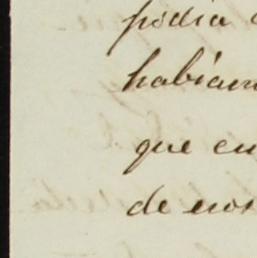 podia
habiam
que en
de nos